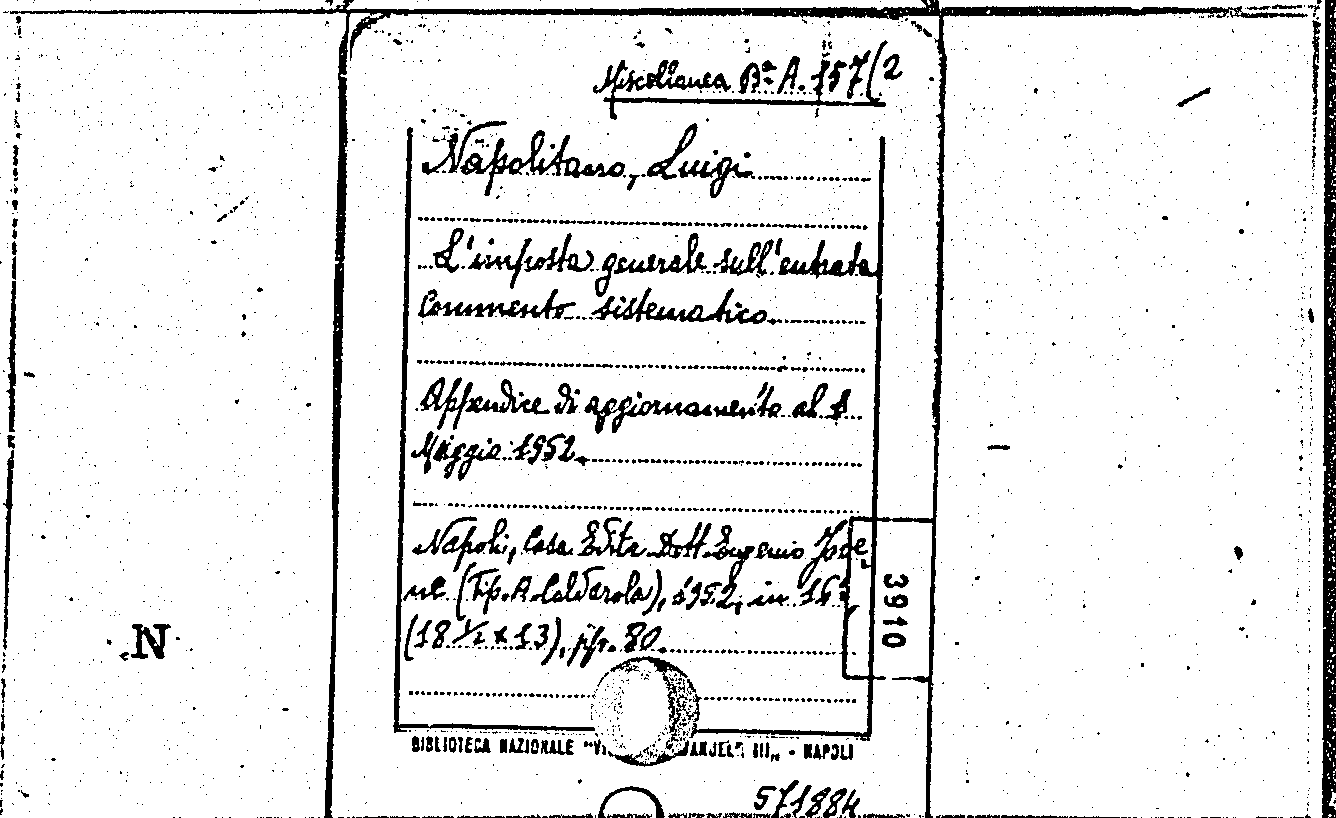 Miscellanea Bª A. 157(2
Napolitano, Luigi
L'imposta generale sull'entrata
Commento sistematico.
Appendice di aggiornamento al 1
Maggio 1952.
Napoli, Casa Edita Dott. Eugenio Jove
ne (Tip. A. Calderola), 1952, in 16º
(18 ½ x 13), pp. 80.
3910
N
BIBLIOTECA NAZIONALE "VI ANUELE III„ - NAPOLI
571884